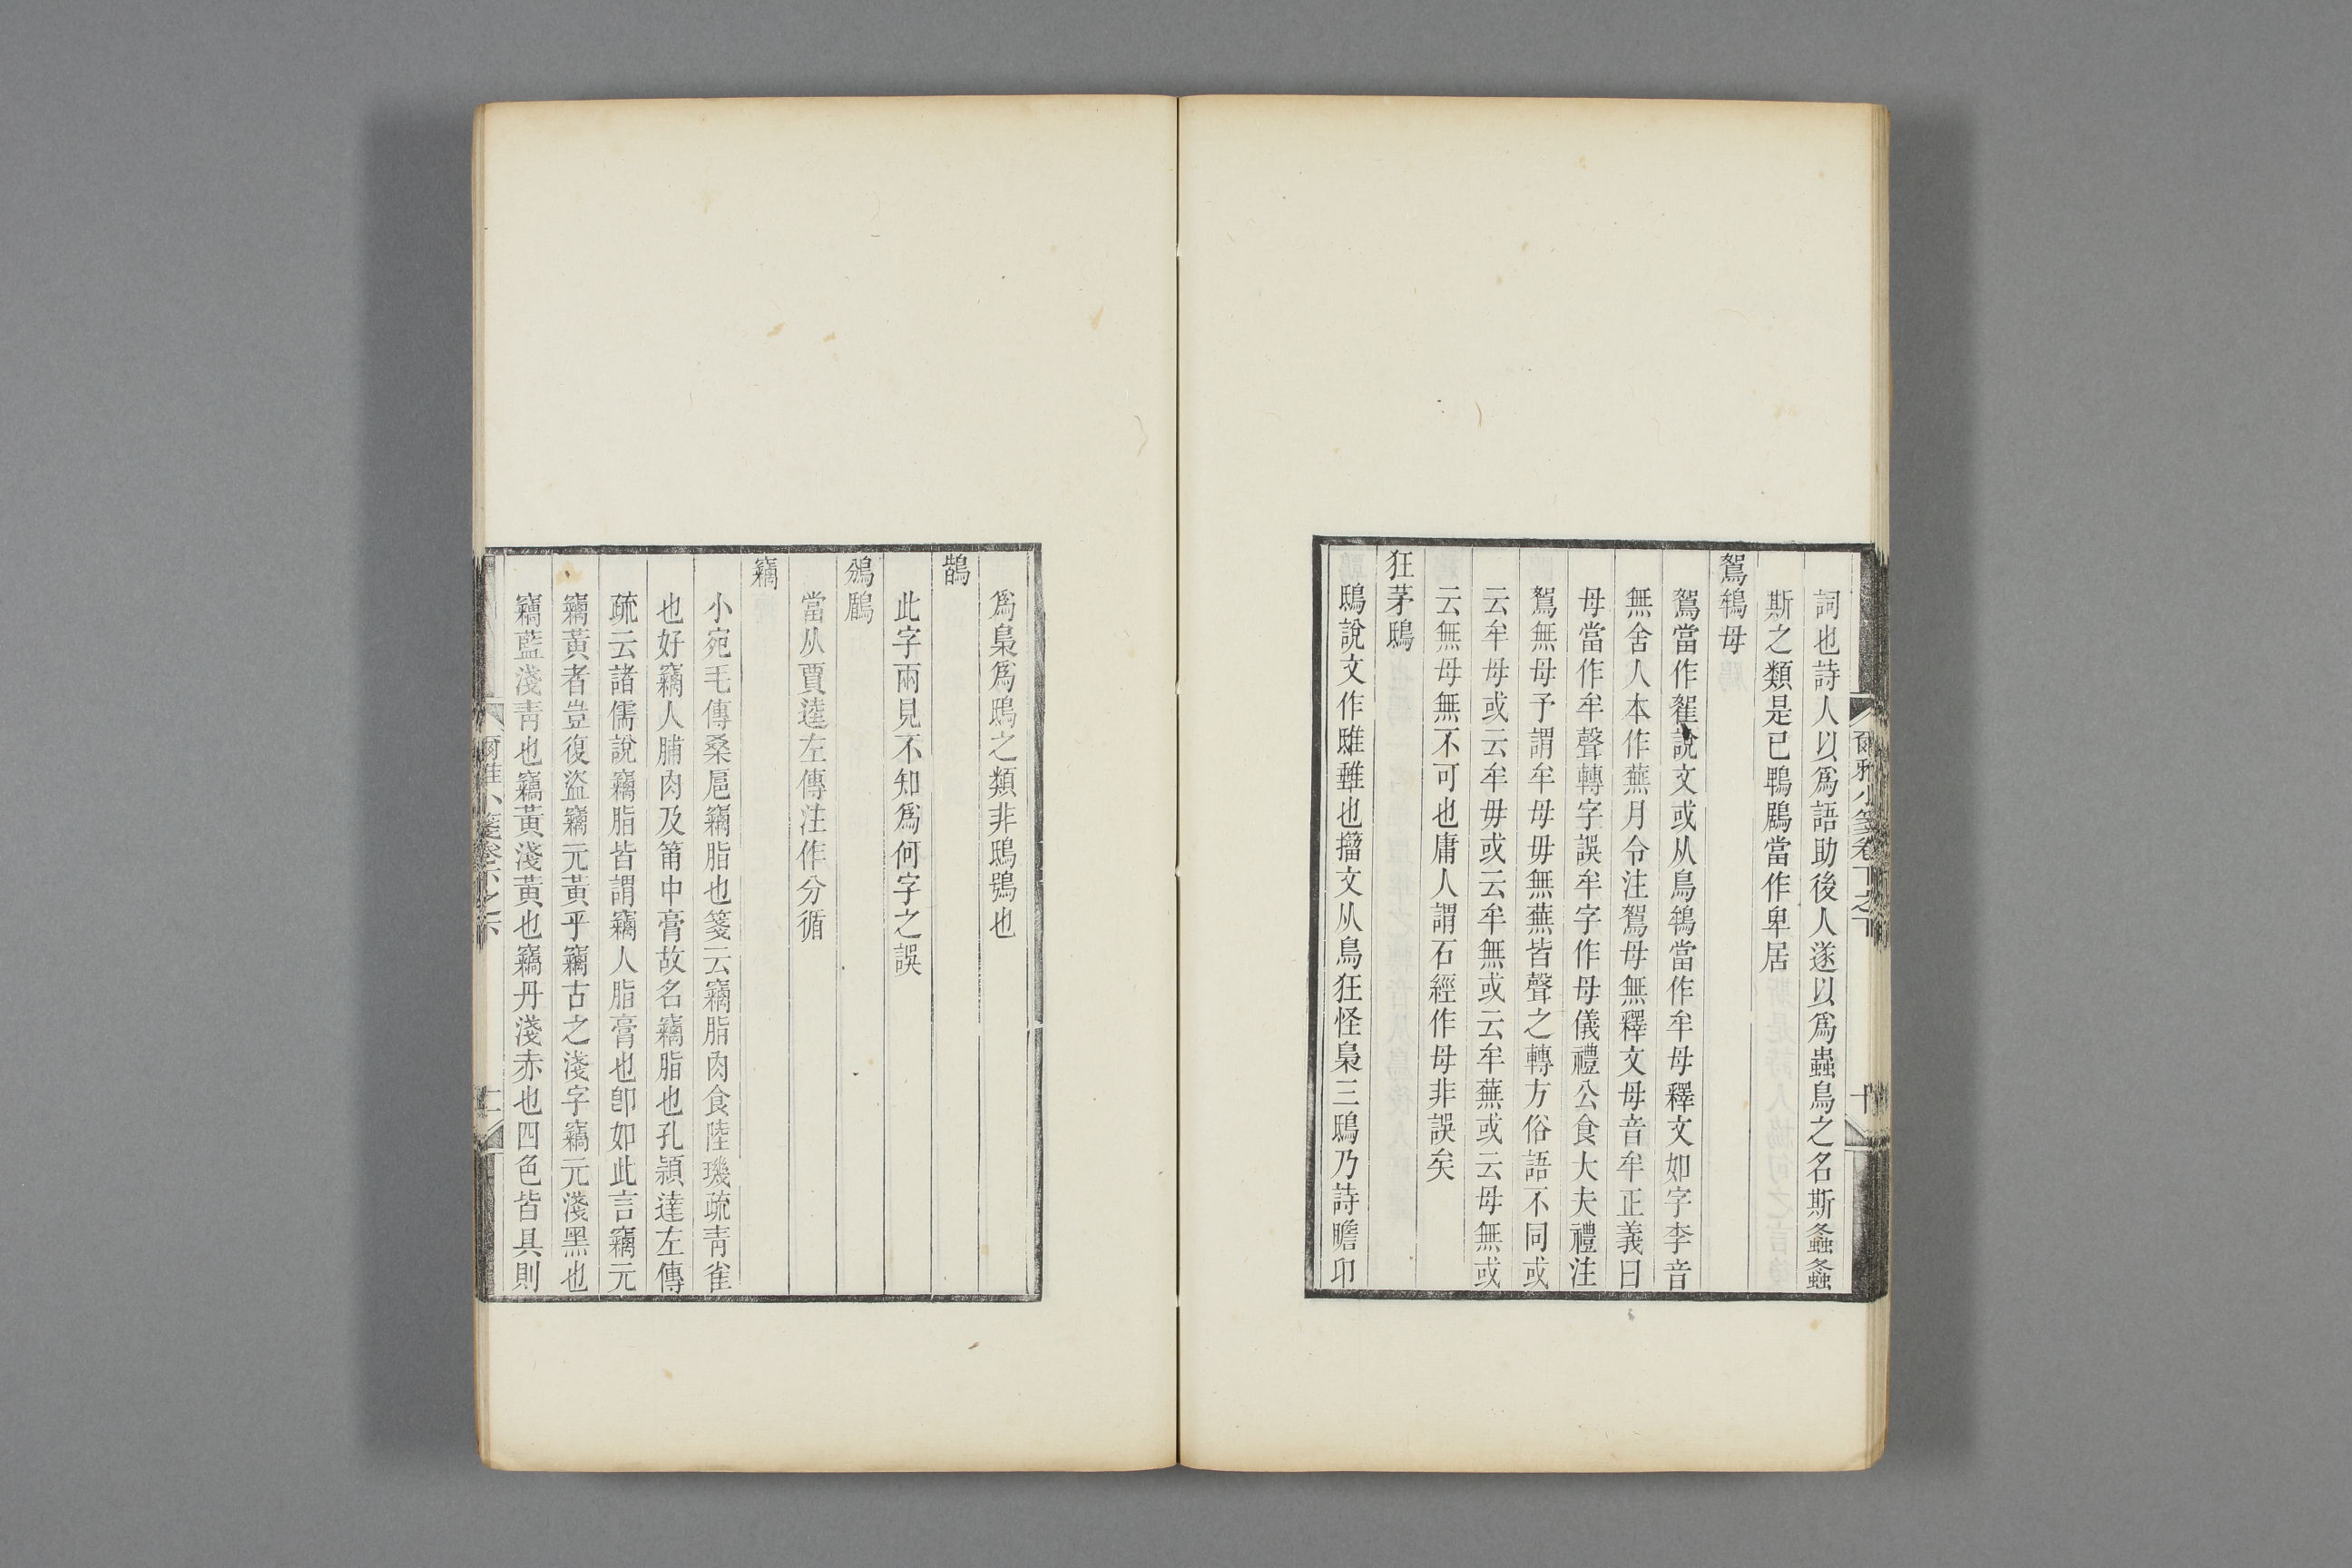 詞也詩人以爲語助後人遂以爲蟲鳥之名斯螽螽
斯之類是已鵯鶋當作卑居
鴽鴾母
鴽當作䳺說文或从鳥鴾當作牟母釋文如字李音
無舍人本作蕪月令注鴽母無釋文母音牟正義曰
母當作牟聲轉字誤牟字作母儀禮公食大夫禮注
鴽無母予謂牟母毋無蕪皆聲之轉方俗語不同或
云牟母或云牟毋或云牟無或云牟蕪或云母無或
云無母無不可也庸人謂石經作母非誤矣
狂茅鴟
鴟說文作雎雖也籀文从鳥狂怪梟三鴟乃詩瞻卬
爲梟爲鴟之類非鴟鴞也
鶛
此字兩見不知爲何字之誤
鳻鶞
當从賈逵左傳注作分循
竊
小宛毛傳桑扈竊脂也箋云竊脂肉食陸璣疏青雀
也好竊人脯肉及筩中膏故名竊脂也孔穎達左傳
疏云諸儒說竊脂皆謂竊人脂膏也卽如此言竊元
竊黃者豈復盜竊元黃乎竊古之淺字竊元淺黑也
竊藍淺青也竊黃淺黃也竊丹淺赤也四色皆具則
爾雅小箋卷下之下
十